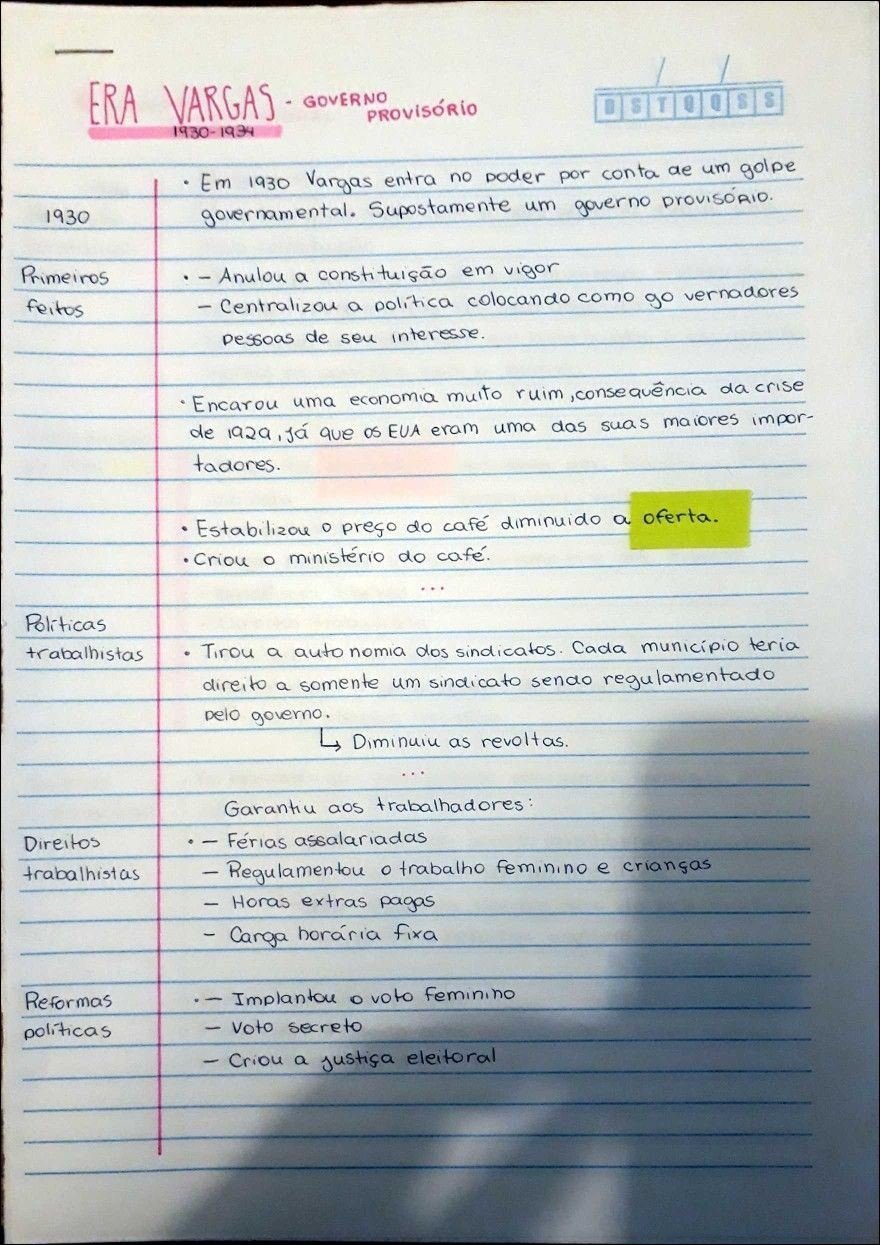 ERA VARGAS - GOVERNO PROVISÓRIO
1930-1934
D S T Q Q S S
• Em 1930 Vargas entra no poder por conta de um golpe
1930 governamental. Supostamente um governo provisório.
Primeiros • - Anulou a constituição em vigor
feitos - Centralizou a política colocando como go vernadores
pessoas de seu interesse.
• Encarou uma economia muito ruim, consequência da crise
de 1929, já que os EUA eram uma das suas maiores impor-
tadores.
• Estabilizou o preço do café diminuido a oferta.
• Criou o ministério do café.
...
Políticas
trabalhistas • Tirou a autonomia dos sindicatos. Cada município teria
direito a somente um sindicato sendo regulamentado
pelo governo.
↳ Diminuiu as revoltas.
...
Garantiu aos trabalhadores:
Direitos • - Férias assalariadas
trabalhistas - Regulamentou o trabalho feminino e crianças
- Horas extras pagas
- Carga horária fixa
Reformas • - Implantou o voto feminino
políticas - Voto secreto
- Criou a justiça eleitoral